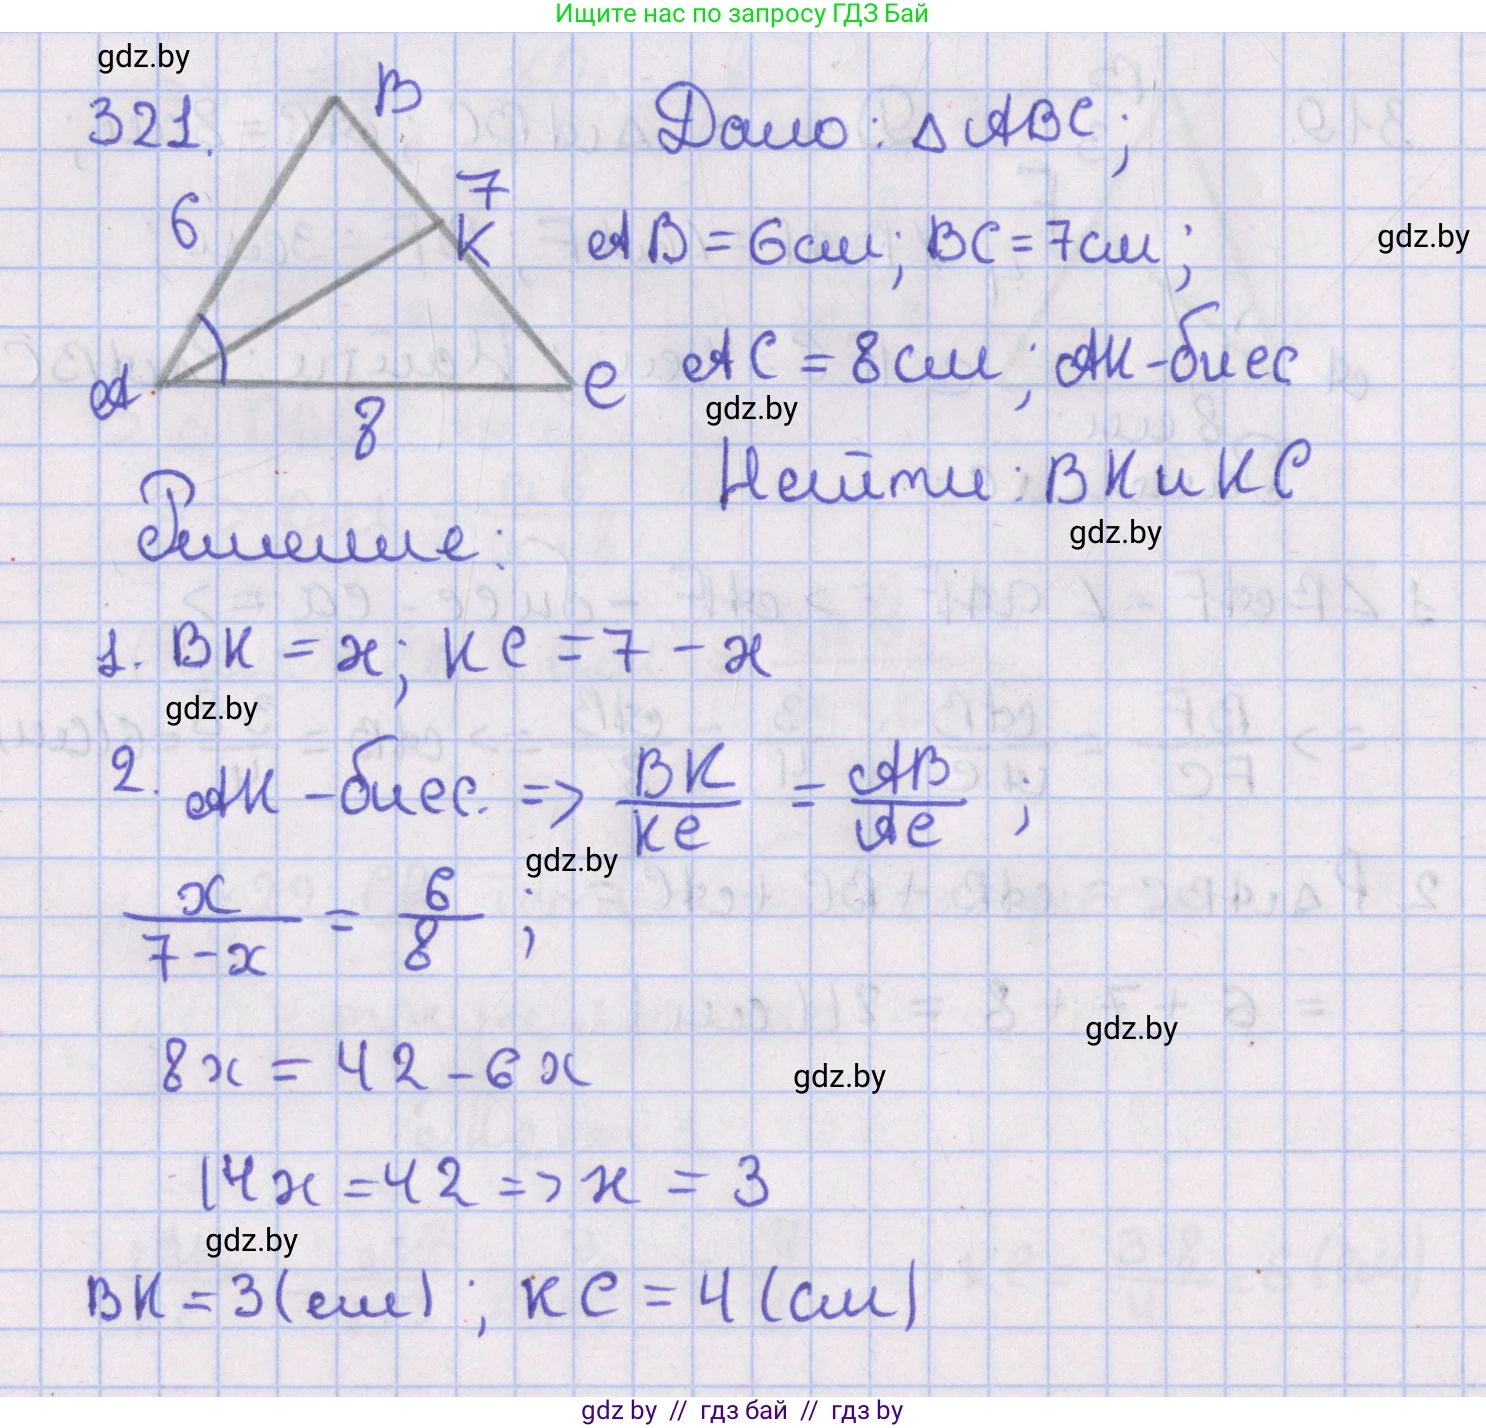 Ищите нас по запросу ГДЗ Бай
gdz.by
321.
B
6
7
K
A
8
C
Дано: △ABC;
AB = 6см; BC = 7см;
gdz.by
AC = 8см; AK - биес
gdz.by
Найти: BK и KC
gdz.by
Решение:
1. BK = x; KC = 7 - x
gdz.by
2. AK - биес. => BK/KC = AB/AC;
gdz.by
x/(7-x) = 6/8;
gdz.by
8x = 42 - 6x
gdz.by
14x = 42 => x = 3
gdz.by
BK = 3 (см); KC = 4 (см)
gdz.by // гдз бай // гдз by